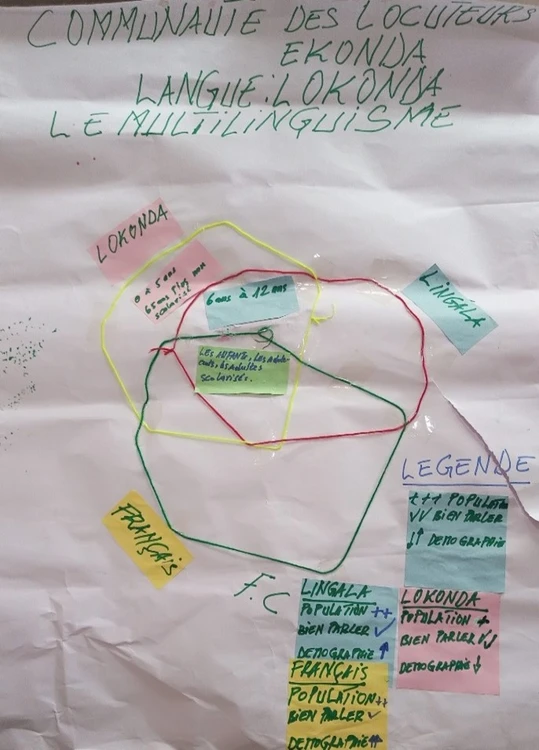 COMMUNAUTÉ DES LOCUTEURS
EKONDA
LANGUE: LOKONDA
LE MULTILINGUISME
LOKONDA
0 à 5 ans
65 ans Plus non
scolarisé
6 ans à 12 ans
LINGALA
LES ENFANTS, Les adole-
cents, les adultes
scolarisés.
FRANÇAIS
F.C
LEGENDE
+++ POPULATION
√√ BIEN PARLER
↓↑ DEMOGRAPHIE
LINGALA
POPULATION ++
BIEN PARLER √
DEMOGRAPHIE ↑
LOKONDA
POPULATION +
BIEN PARLER √√
DEMOGRAPHIE ↓
FRANÇAIS
POPULATION ++
BIEN PARLER √
DEMOGRAPHIE ↑↑